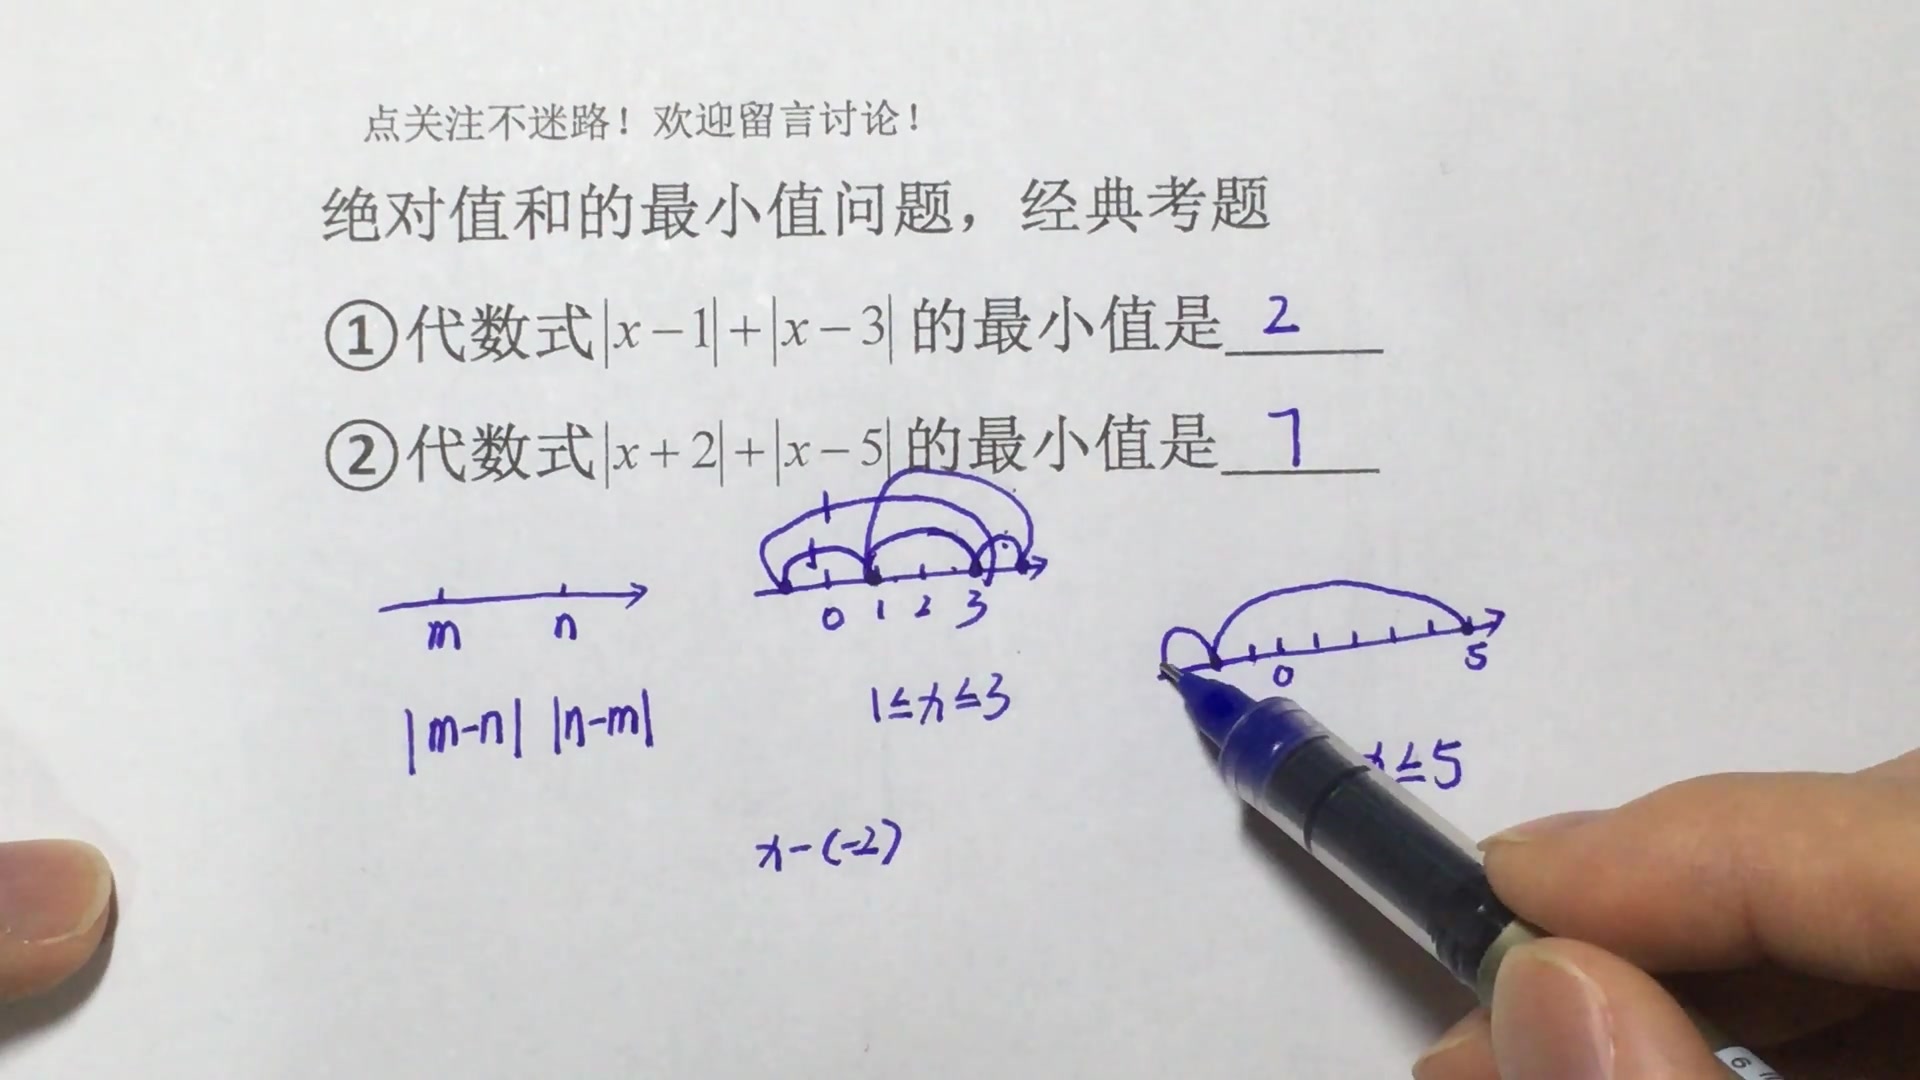 点关注不迷路！欢迎留言讨论！
绝对值和的最小值问题，经典考题
①代数式|x－1|＋|x－3|的最小值是 2
②代数式|x＋2|＋|x－5|的最小值是 7
m n
0 1 2 3
0 5
|m-n| |n-m|
1≤x≤3
x≤5
x-(-2)
6